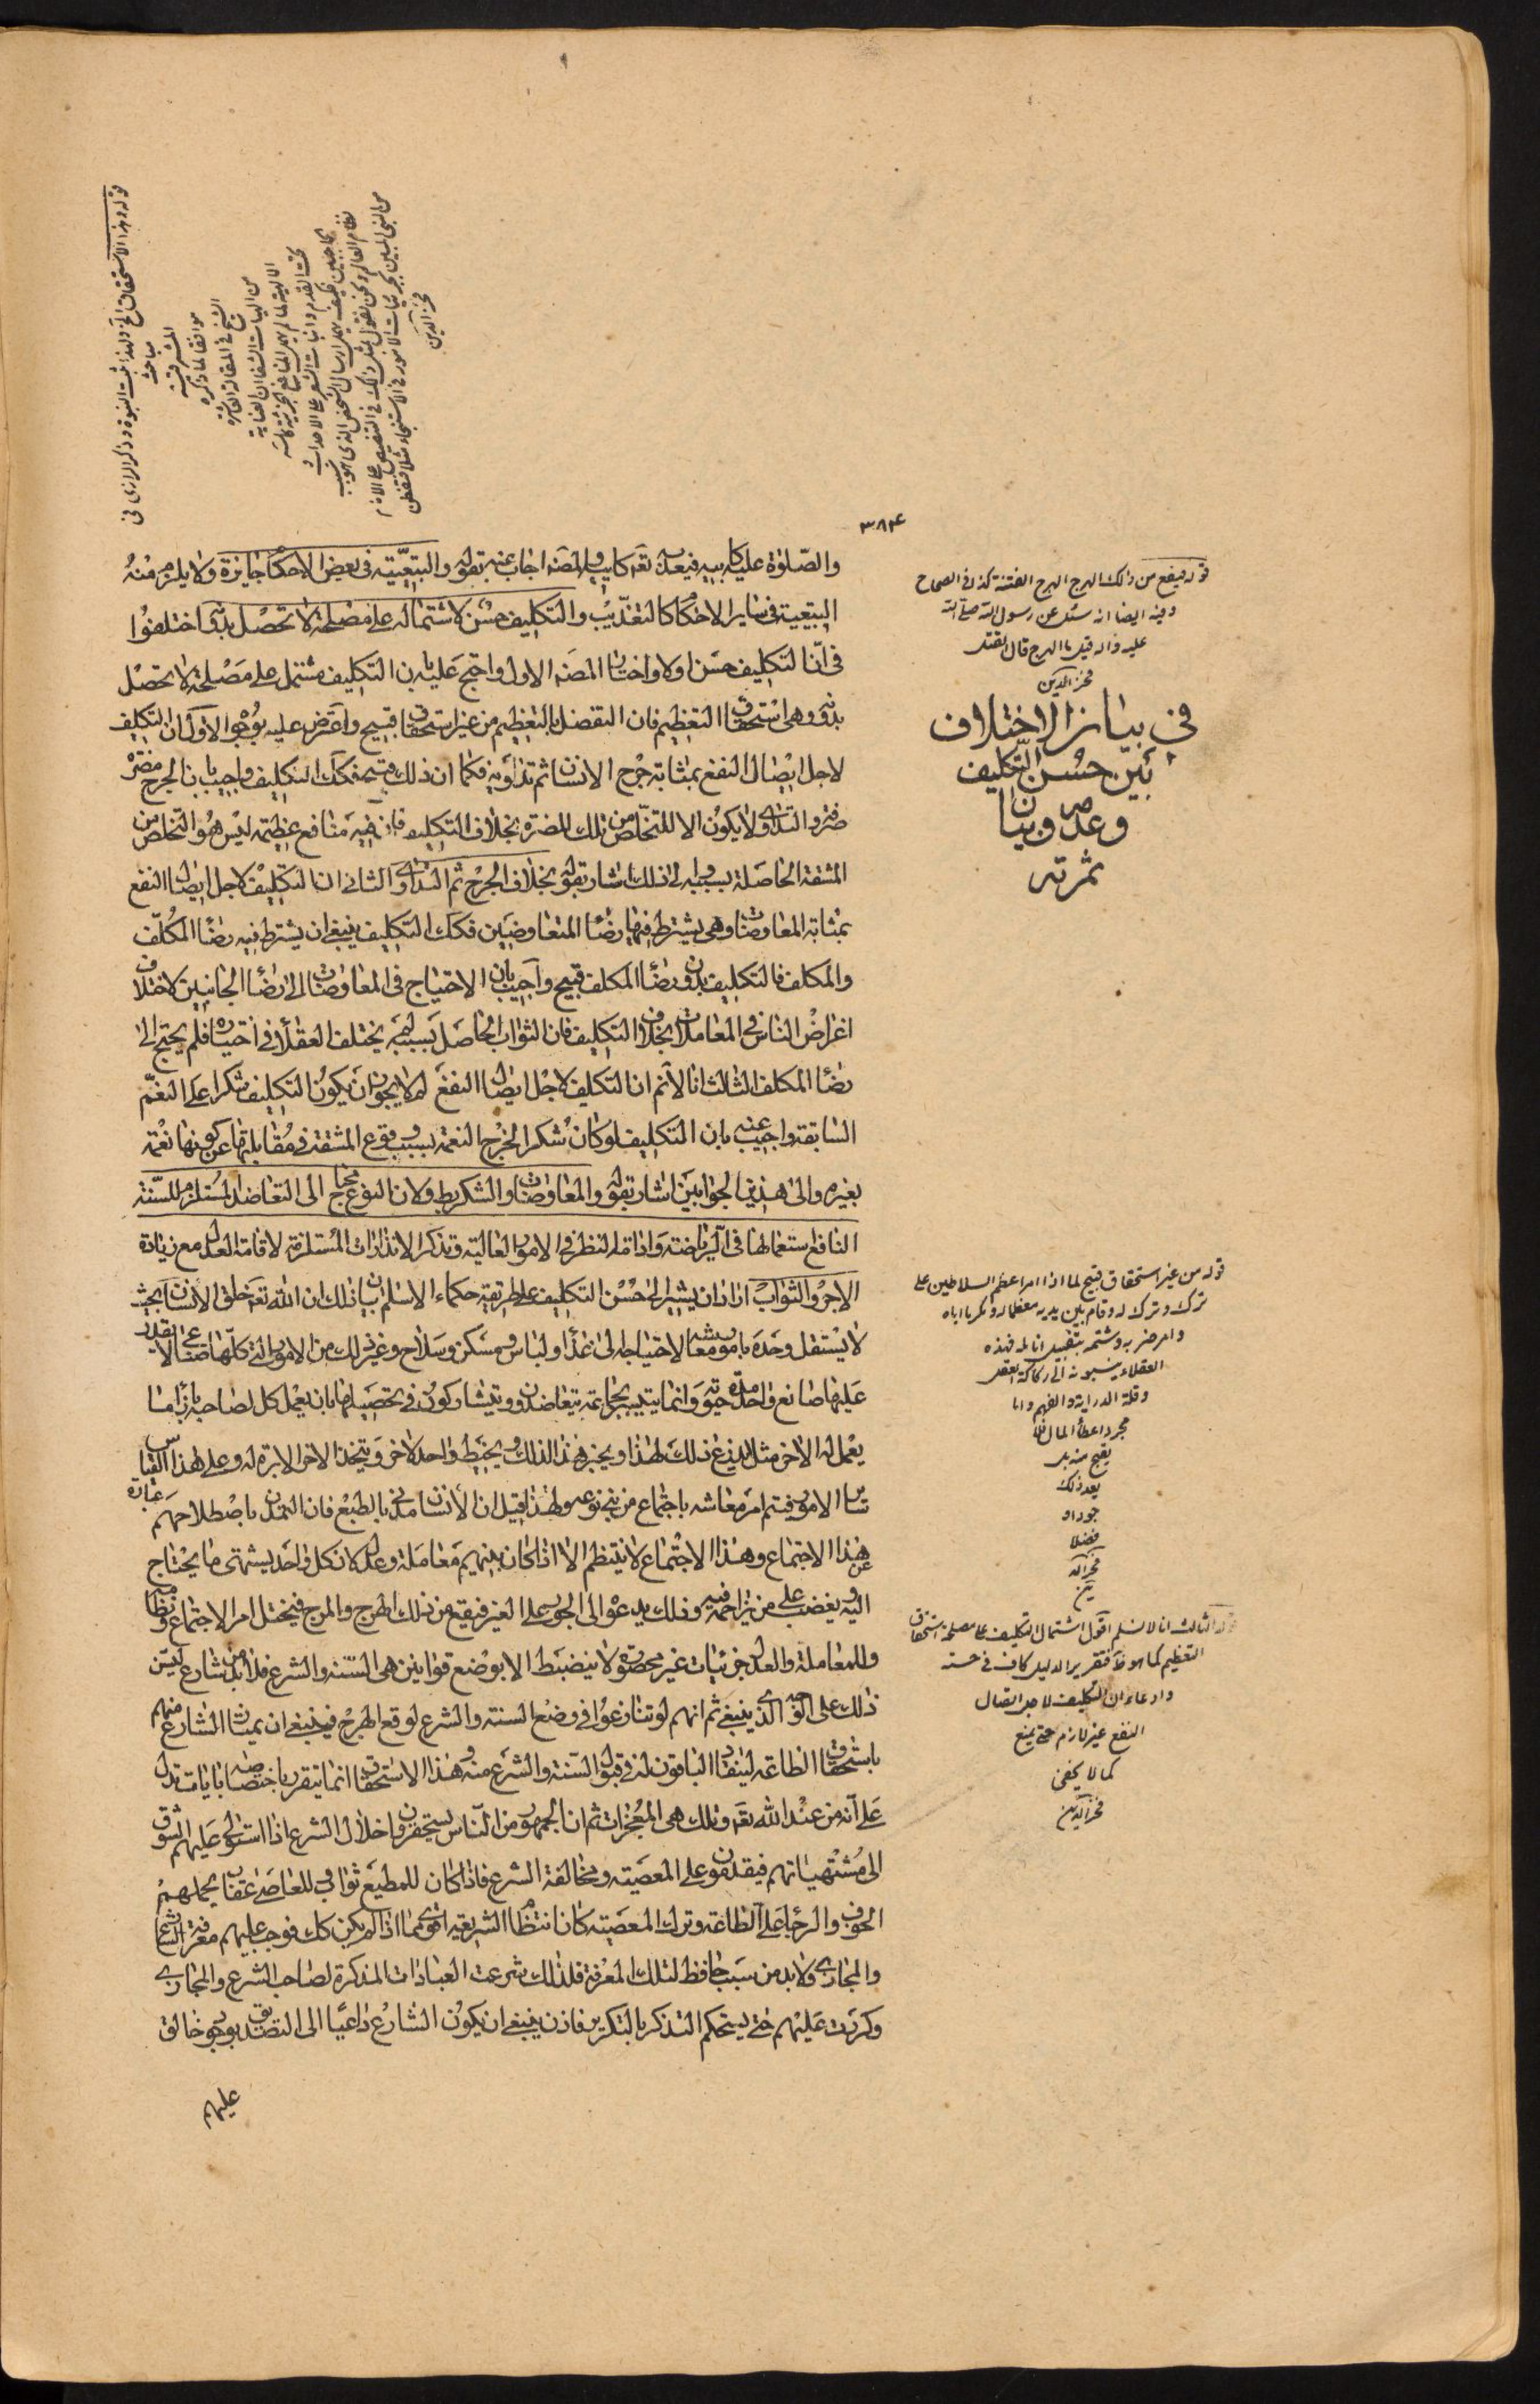 ٣٨٤
والصلوة عليه كابيه فيعذبه الله تعه كابيه والمصنه اجاب عنه بقوله والتبعية فى بعض الاحكام جايزة ولا يلزم منه
التبعية فى ساير الاحكام كالتعذيب والتكليف حسن لاشتماله على مصلحة لا تحصل بدونه اختلفوا
فى ان التكليف حسن اولا واختار المصنه الاول واحتج عليه بان التكليف مشتمل على مصلحة لا تحصل
بدونه وهى استحقاق التعظيم فان التفضل بالتعظيم من غير استحقاق قبيح واعترض عليه بوجوه الاول ان التكليف
لاجل ايصال النفع بمثابة جرح الانسان ثم تداويه فكما ان ذلك قبيح فكك التكليف واجيب بان الجرح مضرة
صرفة والتداوى لا يكون الا للتخلص من تلك المضرة بخلاف التكليف فان فيه منافع عظيمة ليس هو التخلص من
المشقة الحاصلة بسببه والى ذلك اشار بقوله بخلاف الجرح ثم التداوى والثانى ان التكليف لاجل ايصال النفع
بمثابة المعاوضات وهى يشترط فيها رضاء المتعاوضين فكك التكليف ينبغى ان يشترط فيه رضاء المكلف
والمكلف فالتكليف بدون رضاء المكلف قبيح واجيب بان الاحتياج فى المعاوضات الى رضاء الجانبين لاختلاف
اغراض الناس فى المعاملات بخلاف التكليف فان الثواب الحاصل بسببه لم يختلف العقلاء فى اختياره فلم يحتج الى
رضاء المكلف الثالث انا لانم ان التكليف لاجل ايصال النفع لم لا يجوز ان يكون التكليف شكرا على النعم
السابقة واجيب عنه بان التكليف لو كان شكرا لخرج النعمة بسبب وقوع المشقة فى مقابلتها عن كونها نعمة
بغيره والى هذين الجوابين اشار بقوله والمعاوضات والشكر باطل ولان النوع محتاج الى التعاضد المستلزم للسنة
النافع استعمالها فى الرياضة وادامة النظر فى الامور العالية وتذكر الانذارات المستلزمة لاقامة العدل مع زيادة
الاجر والثواب اراد ان يشير الى حسن التكليف على طريقة حكماء الاسلام بان ذلك ان الله تعه خلق الانسان بحيث
لا يستقل وحده بامور معاشه لاحتياجه الى غذاء ولباس ومسكن وسلاح وغير ذلك من الامور التى كلها صناعى لا يقدر
عليها صانع واحد مدة حيوته وانما يتيسر بجماعة يتعاضدون ويتشاركون فى تحصيلها بان يعمل كل لصاحبه بازاء ما
يعمل له الاخر مثلا يزرع ذلك لهذا ويخبز هذا لذلك ويخيط واحد لاخر ويتخذ الاخر الابرة له وعلى هذا القياس
ساير الامور فيتم امر معاشه باجتماع من بنى نوعه ولهذا قيل ان الانسان مدنى بالطبع فان التمدن باصطلاحهم عبارة
عن هذا الاجتماع وهذا الاجتماع لا ينتظم الا اذا كان بينهم معاملة وعدل لان كل واحد يشتهى ما يحتاج
اليه ويغضب على من يزاحمه فيه وذلك يدعو الى الجور على الغير فيقع من ذلك الهرج والمرج فيختل امر الاجتماع ونظامه
وللمعاملة والعدل جزئيات غير محصورة لا ينضبط الا بوضع قوانين هى السنة والشرع فلا بد من شارع ليسن
ذلك على الوجه الذى ينبغى ثم انهم لو تنازعوا فى وضع السنة والشرع لوقع الهرج فينبغى ان يمتاز الشارع منهم
باستحقاق الطاعة لينقاد الباقون له فى قبول السنة والشرع منه وهذا الاستحقاق انما يتقرر باختصاصه بايات تدل
على انه من عند الله تعه وتلك هى المعجزات ثم ان الجمهور من الناس يستحقرون اخلال الشرع اذا استولى عليهم الشوق
الى مشتهياتهم فيقدمون على المعصية ومخالفة الشرع فاذا كان للمطيع ثواب وللعاصى عقاب يحملهم
الخوف والرجاء على الطاعة وترك المعصية كان انتظام الشريعة اقوى مما اذا لم يكن كك فوجب عليهم معرفة الشارع
والمجازى ولا بد من سبب حافظ لتلك المعرفة فلذلك شرعت العبادات المذكرة لصاحب الشرع والمجازى
وكررت عليهم حتى يستحكم التذكر بالتكرير فاذن ينبغى ان يكون الشارع داعيا الى التصديق بوجود خالق
عليهم
قوله فيقع من ذلك الهرج الهرج الفتنة كذا فى الصحاح
وفيه ايضا انه سئل عن رسول الله صلى الله
عليه واله قيل ما الهرج قال القتل
فخر الدين
فى بيان الاختلاف
بين حسن التكليف
وعدمه وبيان
ثمرته
قوله من غير استحقاق قبيح لما اذا امر اعظم السلاطين على
ترك وترك له وقام بين يديه معظما له ومكرما اياه
وامر ضربه وشتمه بتقبيل انامله فهذه
العقلاء ينسبونه الى ركاكة العقل
وقلة الدراية والفهم واما
مجرد اعطاء المال فلا
يقبح منه بل
يعد ذلك
جودا و
فضلا
فخر الد
ين
قوله الثالث انا لا نسلم اقول اشتمال التكليف على مصلحة استحقاق
التعظيم كما هو فى تقرير الدليل كاف فى حسنه
وادعاء ان التكليف لاجل ايصال
النفع غير لازم حتى يمنع
كما لا يخفى
فخر الدين
قوله وهذا الاستحقاق الخ ولهذا اثبت النبوة وذكر الرازى فى
مباحث
المشرقية
موافقا لما ذكره
الشيخ فى المقالة العاشرة
من الهيات الشفا ان العناية
فخر الدين